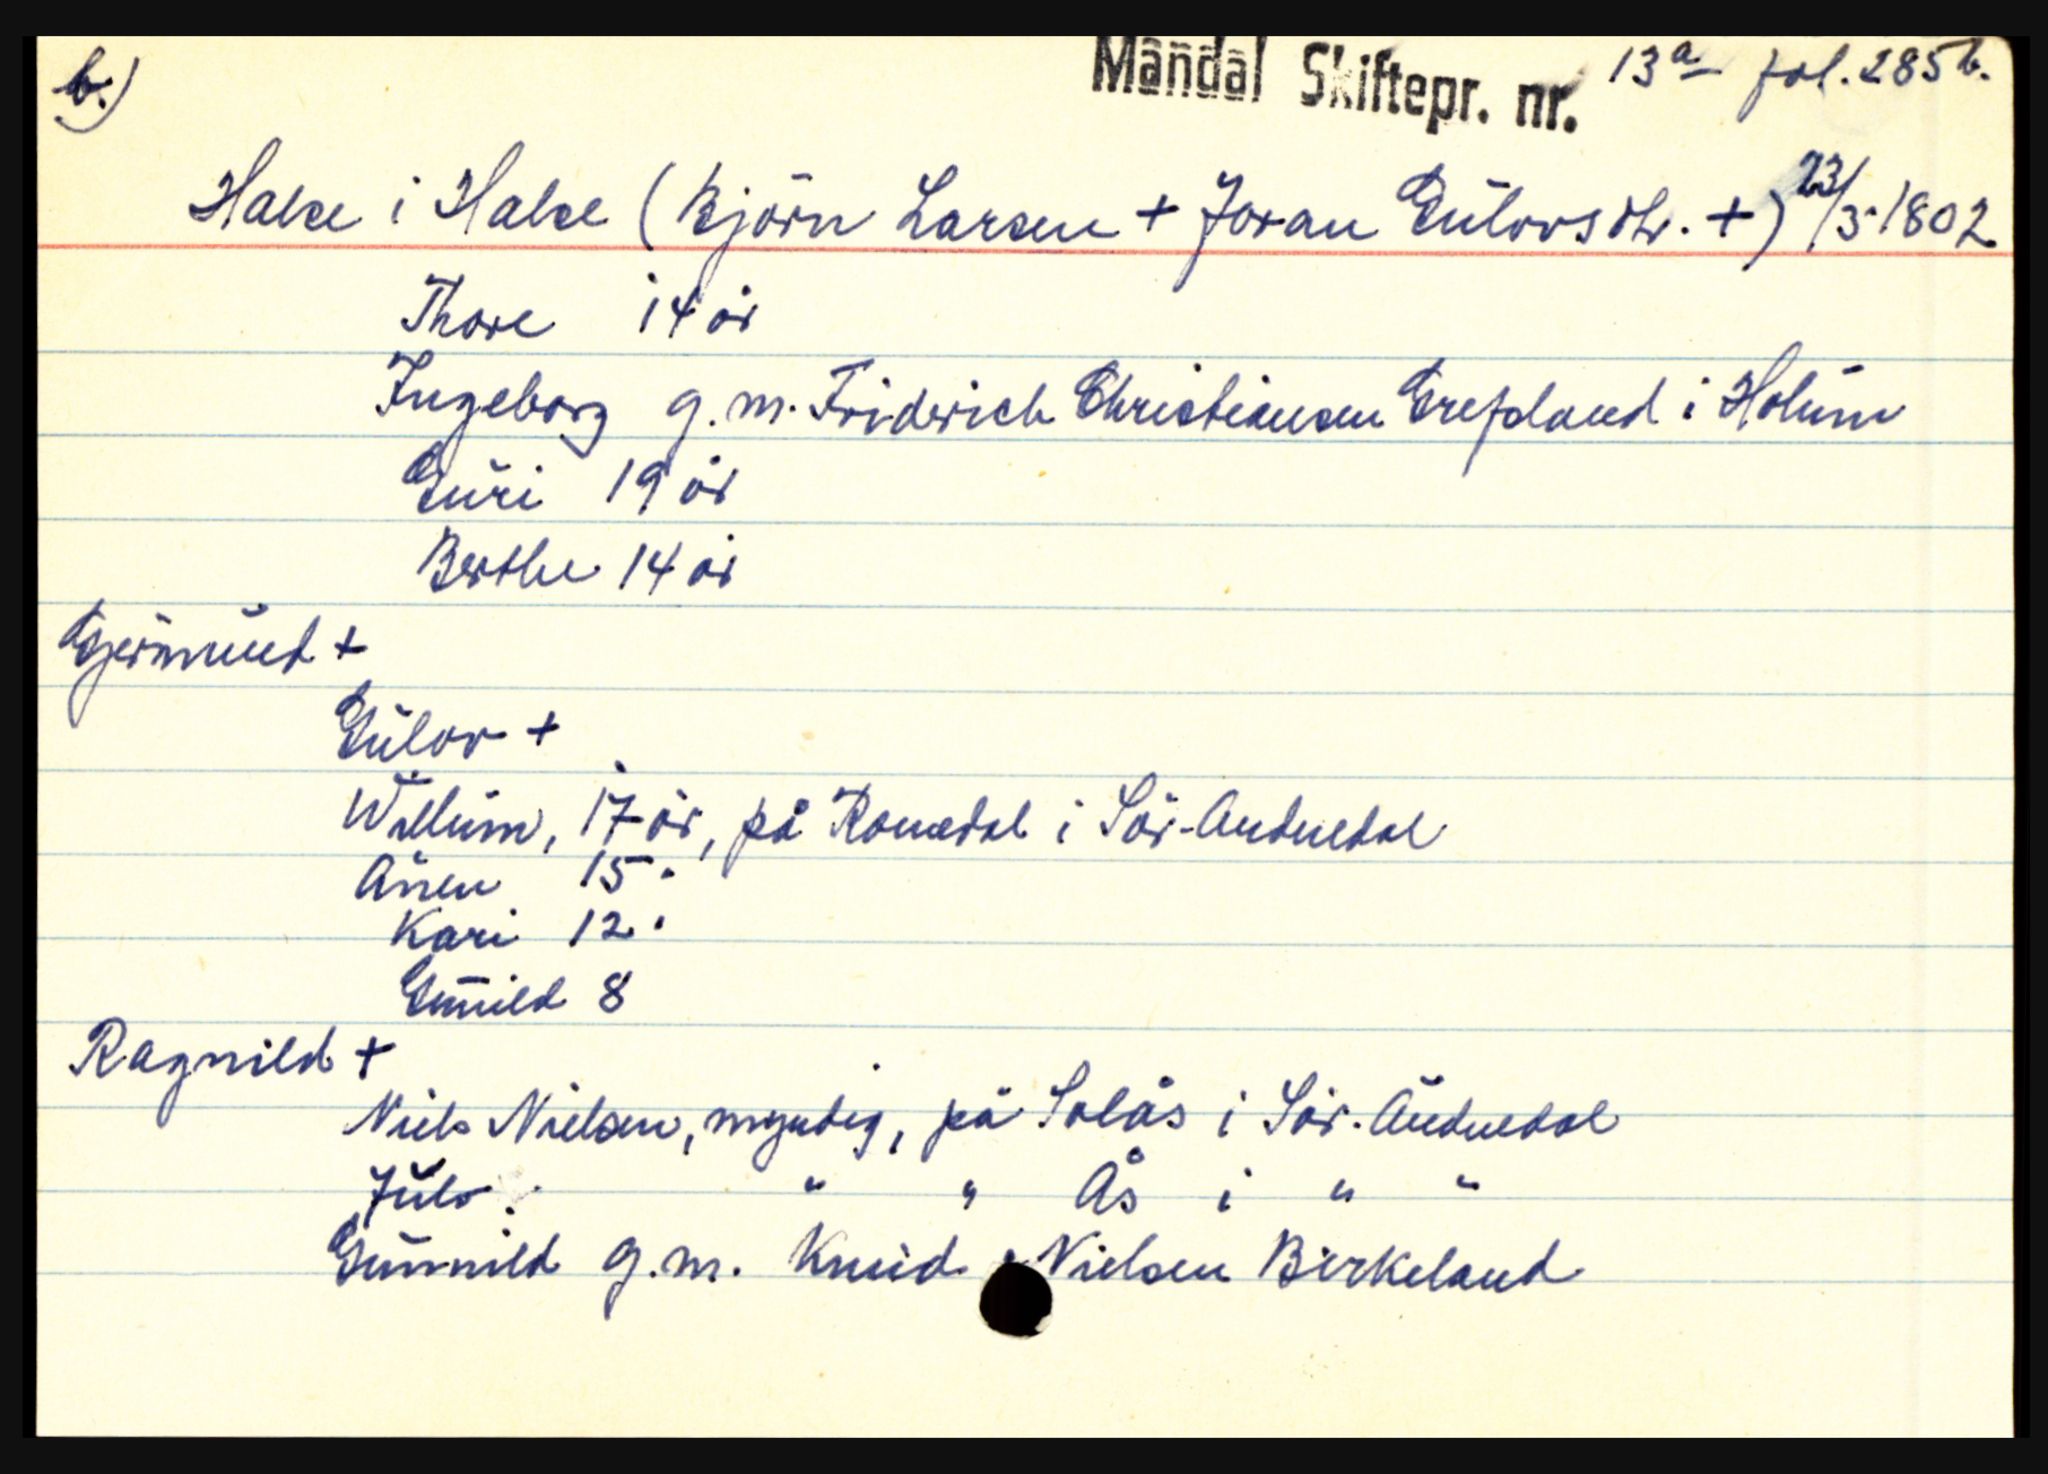 b.)
Mandal Skiftepr. nr. 13a fol. 285b.
Halse i Halse (Björn Larsen + Joran Gulovsdtr. +) 23/3 1802
Thore 14 år
Ingeborg g.m. Friderich Christiansen Grefsland i Holum
Guri 19 år
Berthe 14 år
Gjermund +
Gulov +
Willum, 17 år, på Ronedal i Sör-Audnedal
Ånen 15 "
Kari 12 "
Gunild 8
Ragnild +
Niels Nielsen, myndig, på Solås i Sör-Audnedal
Juls " " Ås i " "
Gunnild g.m. Knud Nielsen Birkeland